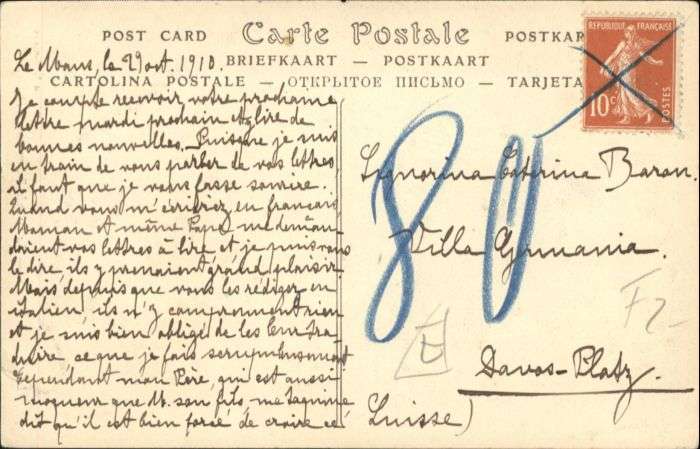 POST CARD Carte Postale POSTKAR
BRIEFKAART — POSTKAART
CARTOLINA POSTALE — ОТКРЫТОЕ ПИСЬМО — TARJETA
REPUBLIQUE FRANÇAISE
10c
POSTES
Le Mans, le 29 oct. 1910.
Je compte recevoir votre prochaine
lettre mardi prochain et y lire de
bonnes nouvelles. Puisque je suis
en train de vous parler de vos lettres,
il faut que je vous fasse sourire.
Quand vous m'écriviez en français,
Maman et même Papa me deman-
daient vos lettres à lire et je puis vous
le dire, ils y prenaient grand plaisir.
Mais depuis que vous les rédigez en
italien, ils n'y comprennent rien
et je suis bien obligé de les leur tra-
duire ce que je fais scrupuleusement
Cependant mon Père, qui est aussi
moqueur que M. son fils, me taquine
dit qu'il est bien forcé de croire ce
80
Signorina Caterina Baran.
Villa Germania.
Davos-Platz.
Suisse)
F2-
E